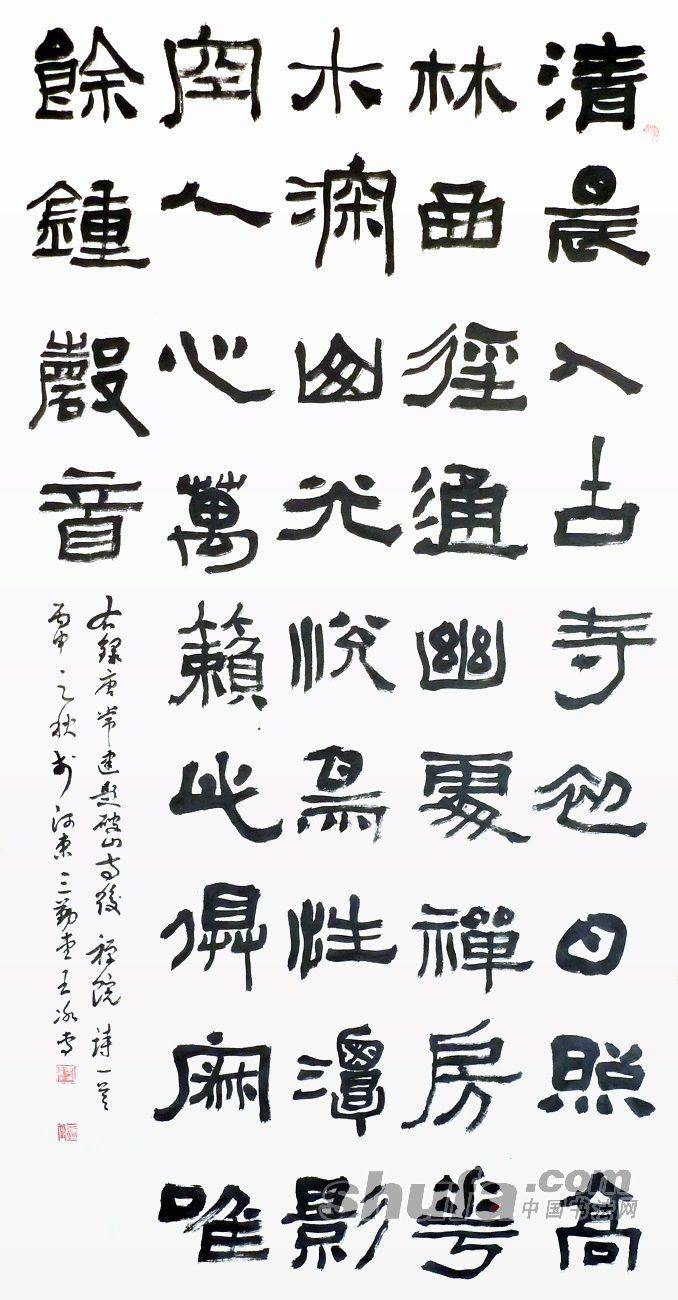 清晨入古寺初日照高
林曲徑通幽處禪房花
木深山光悅鳥性潭影
空人心萬籟此俱寂唯
餘鍾磬音
右錄唐常建題破山寺後禪院詩一首
丙申之秋於河東三勤堂王
shufa.com
中国书法网